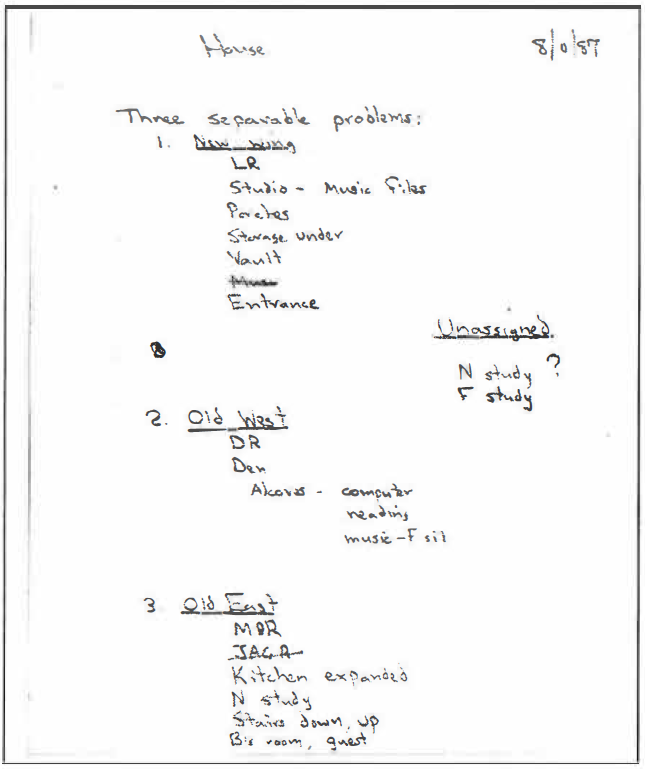 House 8/0/87
Three separable problems:
1. New wing
LR
Studio - Music Files
Porches
Storage under
Vault
Music
Entrance
Unassigned
N study ?
F study
2. Old West
DR
Den
Alcoves - computer
reading
music - F sil
3 Old East
MBR
Kitchen expanded
N study
Stairs down, up
B's room, guest